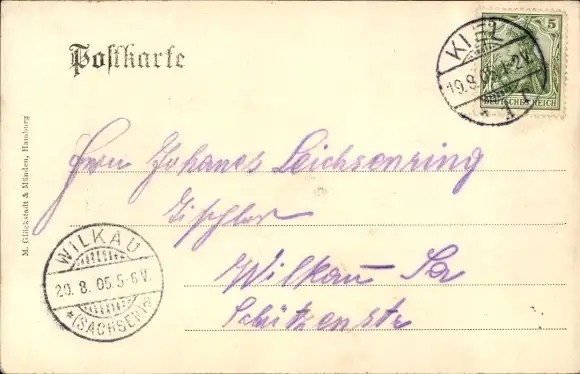 Postkarte
5
DEUTSCHES REICH
KIEL
19.8.05.1-2V.
* 1
M. Glückstadt & Münden, Hamburg
Herrn Johanes Leichsenring
Tischler
Wilkau Sa
Schützenstr
WILKAU
20.8.05.5-6V.
* (SACHSEN)